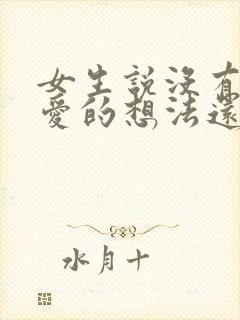 女生説沒有
愛的想法還
水月十